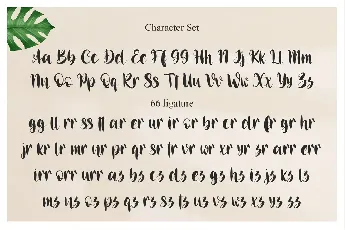 Character Set
Aa Bb Cc Dd Ee Ff gg Hh Ii Jj Kk Ll Mm
Nn Oo Pp Qq Rr Ss Tt Uu Vv Ww Xx Yy Zz
66 ligature
gg ll rr ss tt ar er ur ir or br cr dr fr gr hr
jr kr lr mr nr pr qr sr tr vr wr xr yr zr arr err
irr orr urr as bs cs ds es gs hs is js ks ls
ms ns os ps qs rs ss ts us vs ws xs ys zs